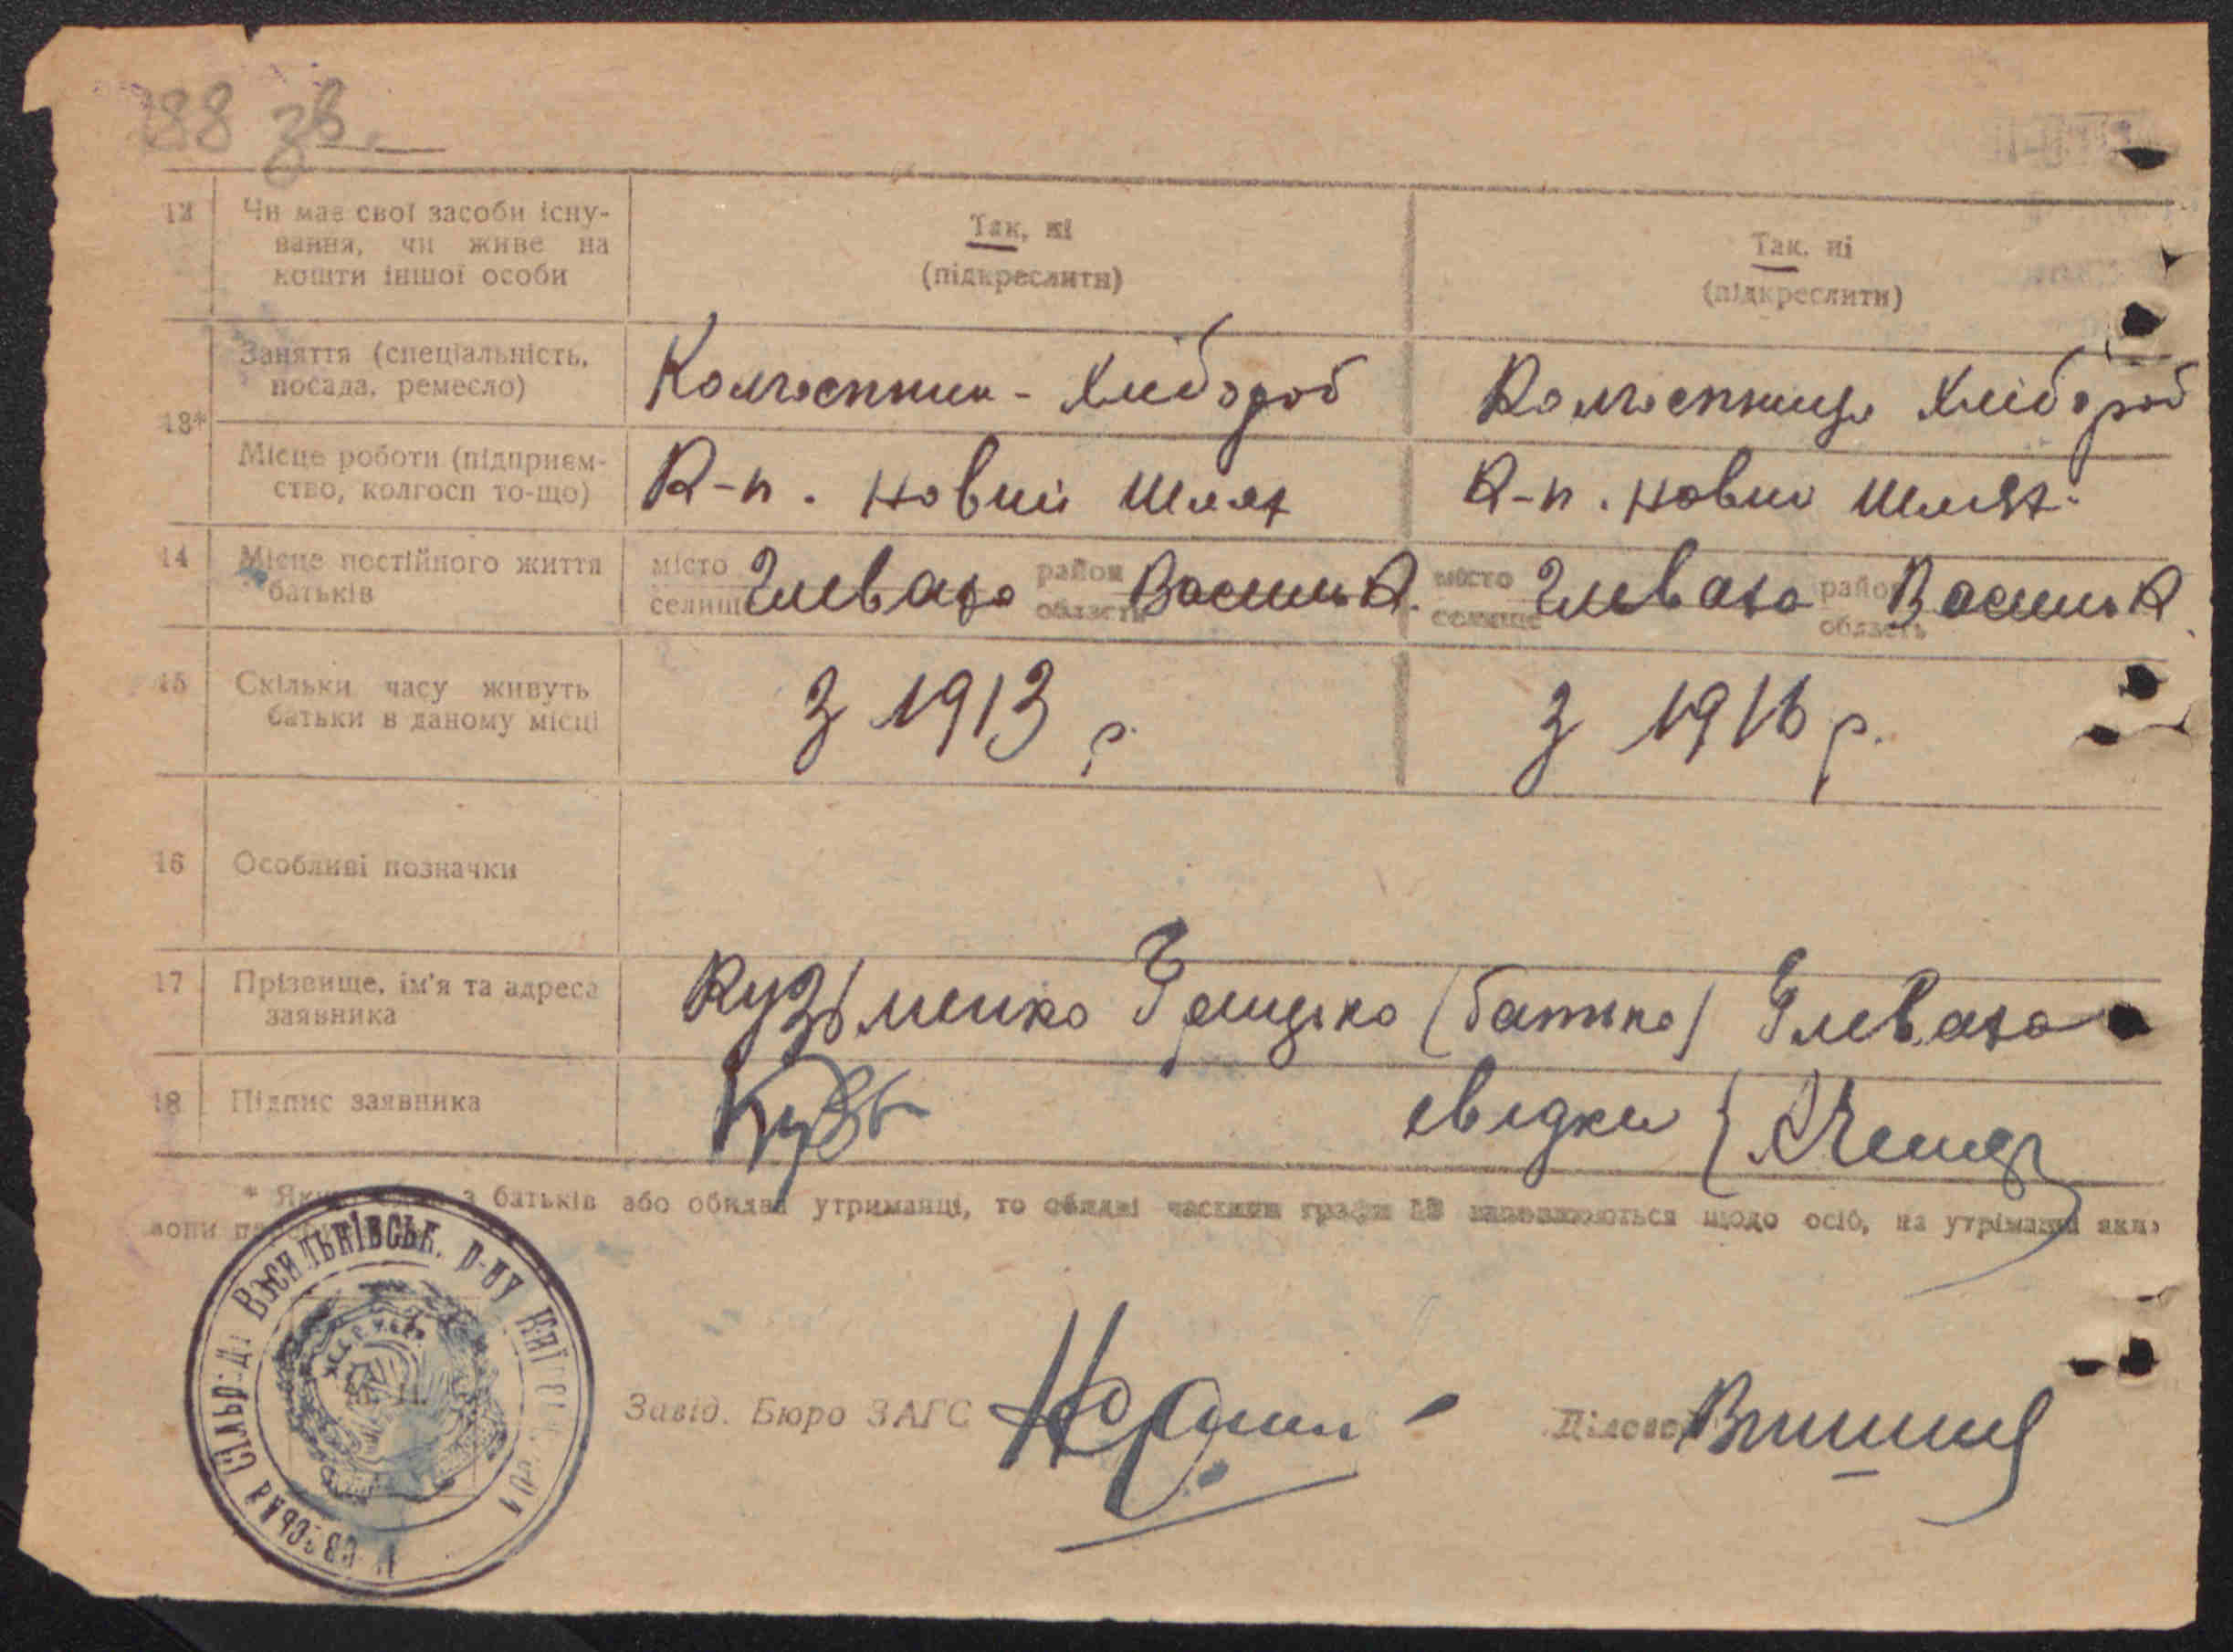 188 зв.
12 Чи має свої засоби існу-
вання, чи живе на
кошти іншої особи
Так, ні
(підкреслити)
Так, ні
(підкреслити)
13*
Заняття (спеціальність,
посада, ремесло)
Колгоспник - хлібороб
Колгоспниця хлібороб
Місце роботи (підприєм-
ство, колгосп то-що)
К-п. Новий Шлях
К-п. Новий Шлях
14 Місце постійного життя
батьків
місто
селище
Глеваха
район
область
Васильк.
місто
селище
Глеваха
район
область
Васильк
15 Скільки часу живуть
батьки в даному місці
З 1913 р.
З 1916 р.
16 Особливі позначки
17 Прізвище, ім'я та адреса
заявника
Кузьменко Грицько (батько) Глеваха
18 Підпис заявника
Кузь
свідки {
* з батьків або обидва утриманці, то обидві частини графи 13 заповнюються щодо осіб, на утриманні яких
вони
Васильківськ. р-ну
Завід. Бюро ЗАГС
Діловод